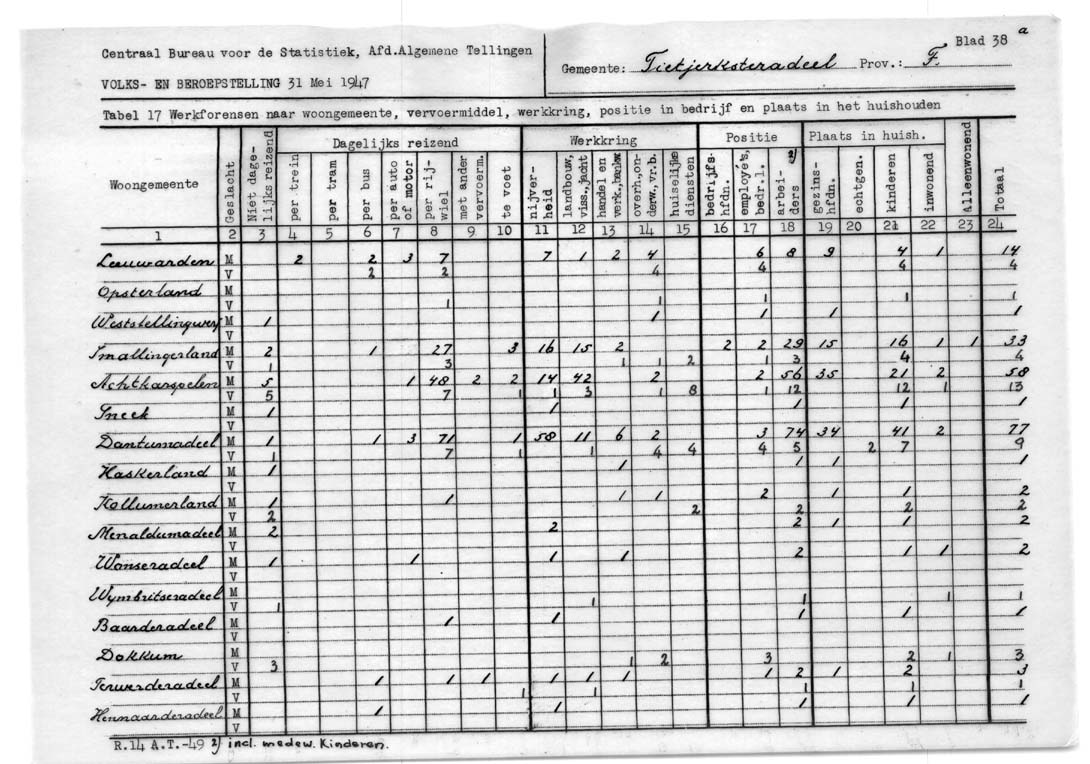 Blad 38 a
Centraal Bureau voor de Statistiek, Afd.Algemene Tellingen
Gemeente: Tietjerksteradeel Prov.: F.
VOLKS- EN BEROEPSTELLING 31 Mei 1947
Tabel 17 Werkforensen naar woongemeente, vervoermiddel, werkkring, positie in bedrijf en plaats in het huishouden
Woongemeente Geslacht Niet dage-lijks reizend Dagelijks reizend Werkkring Positie Plaats in huish. Alleenwonend Totaal
per trein per tram per bus per auto of motor per rij-wiel met ander vervoerm. te voet nijver-heid landbouw, viss., jacht handel en verk., overh., on-derw., vr.b. huiselijke diensten bedrijfs-hfdn. employé's, bedr.l. arbei-ders 2) gezins-hfdn. echtgen. kinderen inwonend
1 2 3 4 5 6 7 8 9 10 11 12 13 14 15 16 17 18 19 20 21 22 23 24
Leeuwarden M 2 2 3 7 7 1 2 4 6 8 9 4 1 14
V 2 2 4 4 4 4
Opsterland M
V 1 1 1 1 1
Weststellingwerf M 1 1 1 1 1
V
Smallingerland M 2 1 27 3 16 15 2 2 2 29 15 16 1 1 33
V 1 3 1 1 2 1 3 4 4
Achtkarspelen M 5 1 48 2 2 14 42 2 2 56 35 21 2 58
V 5 7 1 1 3 1 8 1 12 12 1 13
Sneek M 1 1 1 1 1
V
Dantumadeel M 1 1 3 71 1 58 11 6 2 3 74 34 41 2 77
V 1 7 1 1 4 4 4 5 2 7 9
Haskerland M 1 1 1 1 1
V
Kollumerland M 1 1 1 1 2 1 1 2
V 2 2 2 2 2
Menaldumadeel M 2 2 2 1 1 2
V
Wonseradeel M 1 1 1 1 2 1 1 2
V
Wymbritseradeel M
V 1 1 1 1 1
Baarderadeel M 1 1 1 1 1
V
Dokkum M
V 3 1 2 3 2 1 3
Ferwerderadeel M 1 1 1 1 1 1 1 2 1 2 3
V 1 1 1 1 1
Hennaarderadeel M 1 1 1 1 1
V
R.14 A.T.-49 2) incl. medew. Kinderen.